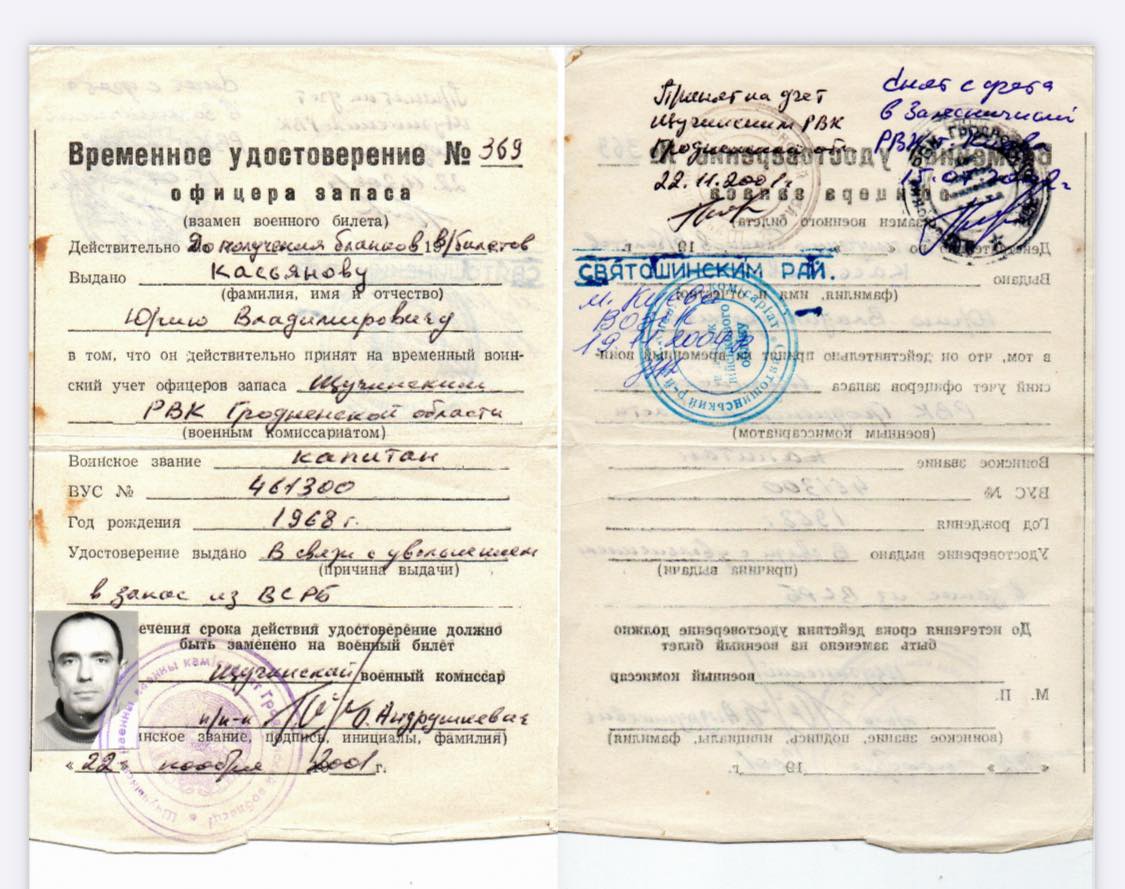 Временное удостоверение № 369
офицера запаса
(взамен военного билета)
Действительно до получения бланков 19 в/билетов
Выдано Касьянову
(фамилия, имя и отчество)
Юрию Владимировичу
в том, что он действительно принят на временный воин-
ский учет офицеров запаса Щучинским
РВК Гродненской области
(военным комиссариатом)
Воинское звание капитан
ВУС № 461300
Год рождения 1968 г.
Удостоверение выдано В связи с увольнением
(причина выдачи)
в запас из ВСРБ
ечения срока действия удостоверение должно
быть заменено на военный билет
Щучинский военный комиссар
п/п-к О. Андрушкевич
инское звание, подпись, инициалы, фамилия)
« 22 » ноября 2001 г.
Принят на учет
Щучинским РВК
Гродненской обл
22.11.2001г.
Снят с учета
в Зализничный
РВК г. Киева
СВЯТОШИНСКИМ РАЙ.
м. Києва
19.11.2004
До истечения срока действия удостоверение должно
быть заменено на военный билет
военный комиссар
М. П.
(воинское звание, подпись, инициалы, фамилия)